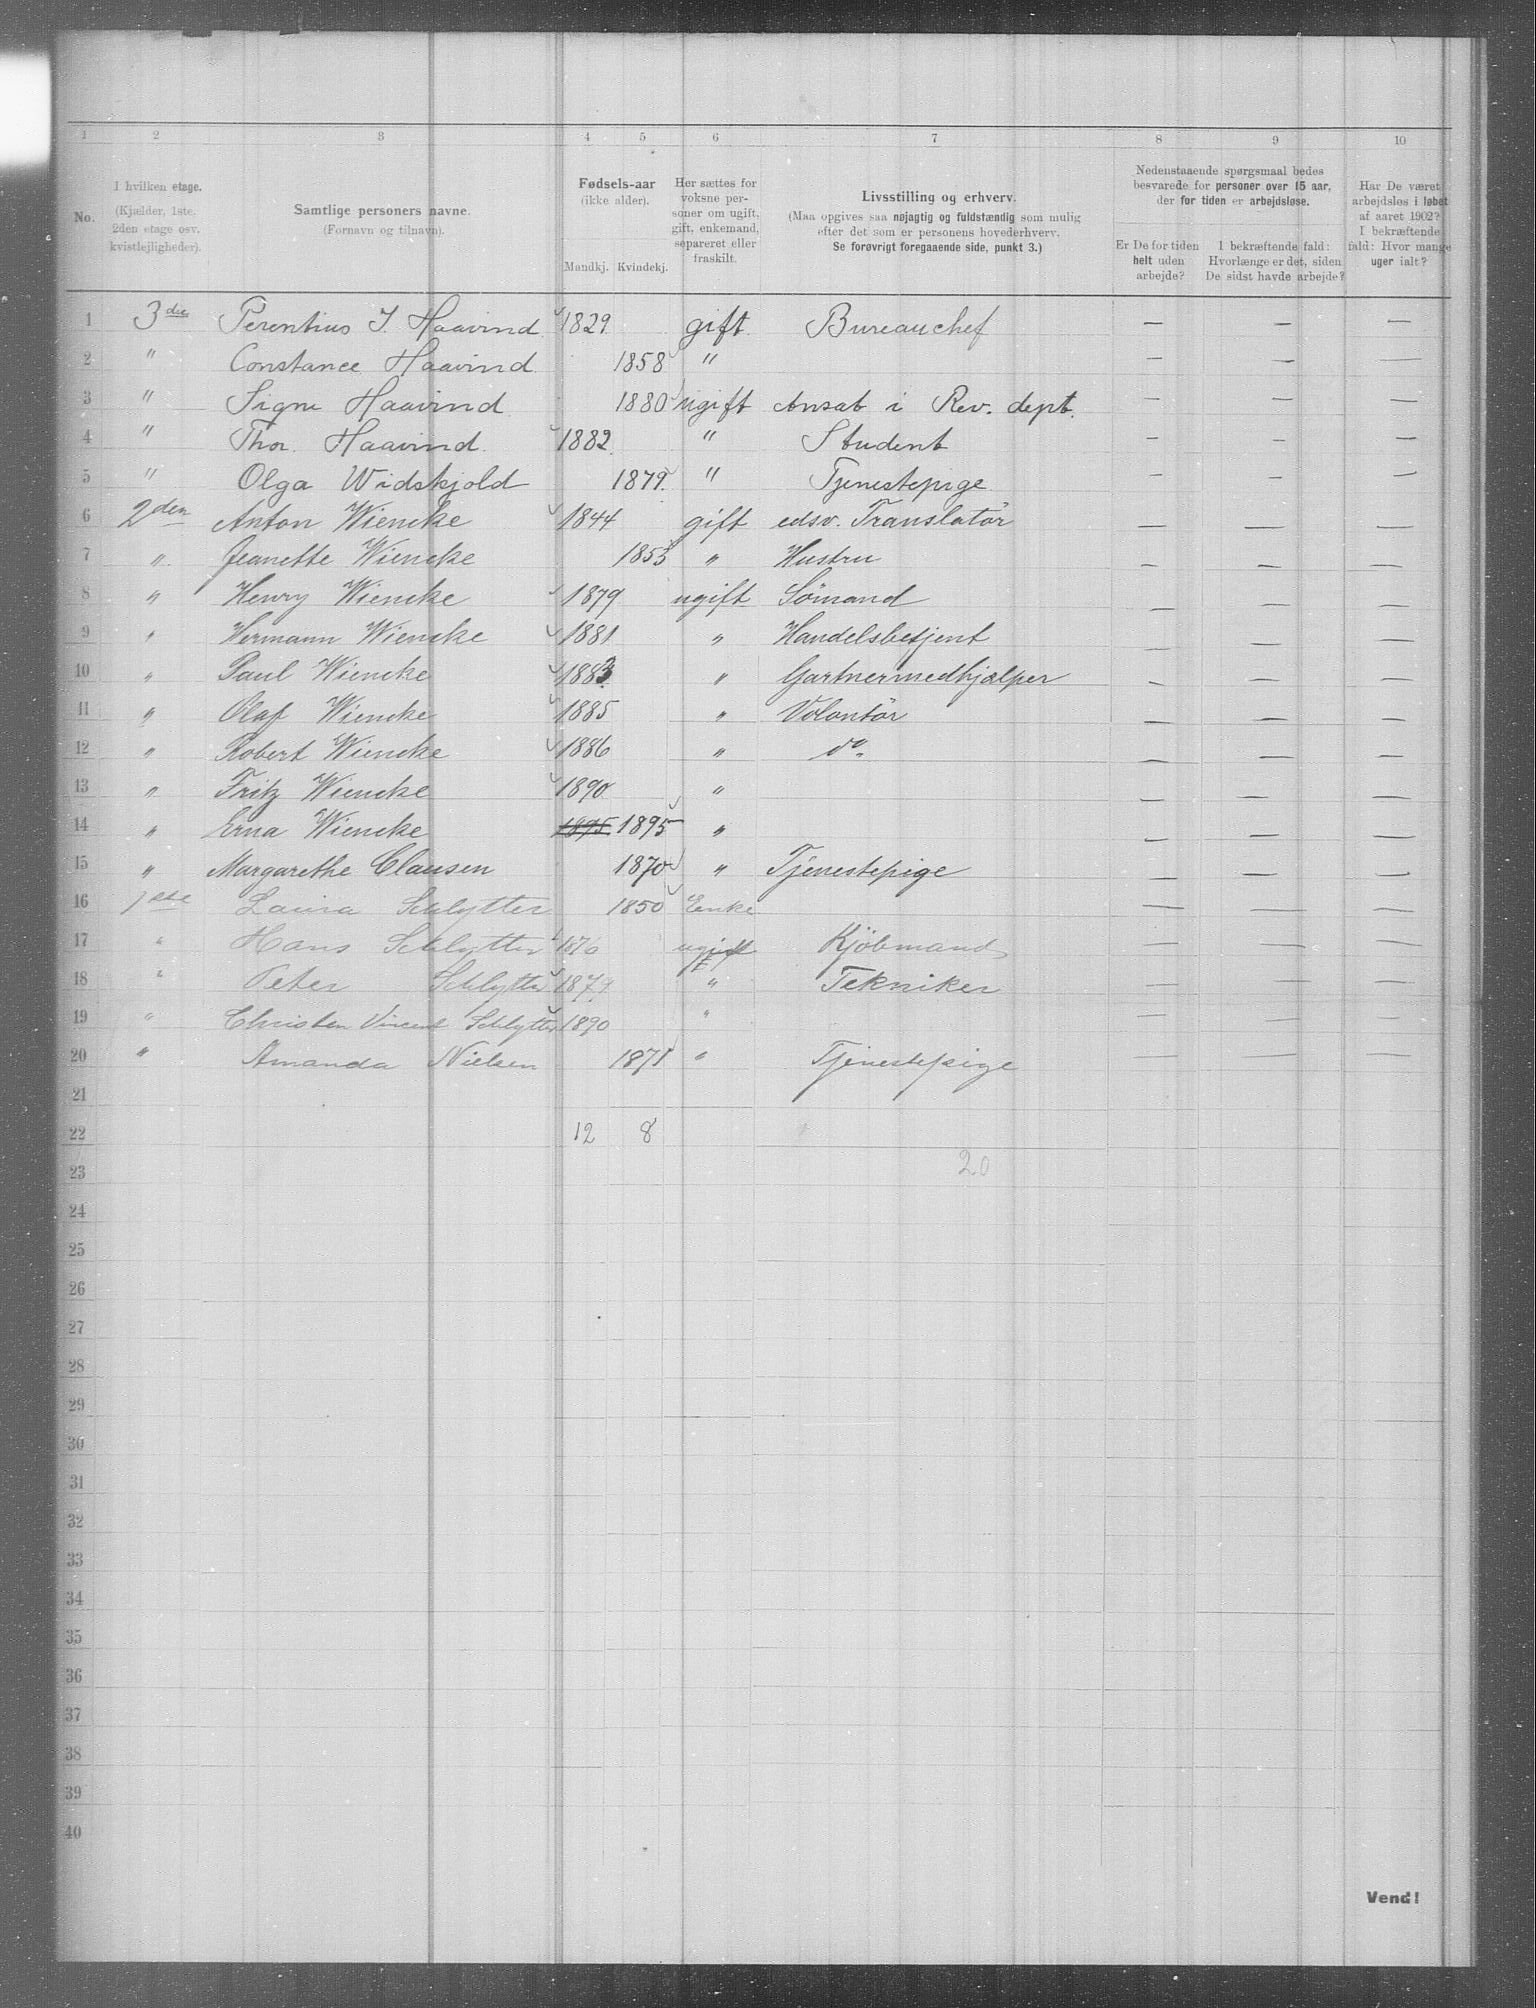 1 2 3 4 5 6 7 8 9 10
No.
I hvilken etage.
(Kjælder, 1ste.
2den etage osv.
kvistlejligheder).
Samtlige personers navne.
(Fornavn og tilnavn).
Fødsels-aar
(ikke alder).
Mandkj. Kvindekj.
Her sættes for
voksne per-
soner om ugift,
gift, enkemand,
separeret eller
fraskilt.
Livsstilling og erhverv.
(Maa opgives saa nøjagtig og fuldstændig som mulig
efter det som er personens hovederhverv.
Se forøvrigt foregaaende side, punkt 3.)
Nedenstaaende spørgsmaal bedes
besvarede for personer over 15 aar,
der for tiden er arbejdsløse.
Er De for tiden
helt uden
arbejde?
I bekræftende fald:
Hvorlænge er det, siden
De sidst havde arbejde?
Har De været
arbejdsløs i løbet
af aaret 1902?
I bekræftende
fald: Hvor mange
uger ialt?
1 3die Perentius I. Haavind 1829 gift. Bureauchef — — —
2 " Constance Haavind 1858 " — — —
3 " Signe Haavind 1880 ugift Ansat i Rev. dept. — — —
4 " Thor. Haavind 1882 " Student — — —
5 " Olga Widskjold 1879 " Tjenestepige — — —
6 2den Anton Wiencke 1844 gift edsv. Translatör — — —
7 " Jeanette Wiencke 1853 " Hustru — — —
8 " Henry Wiencke 1879 ugift Sömand — — —
9 " Hermann Wiencke 1881 " Handelsbetjent — — —
10 " Paul Wiencke 1883 " Gartnermedhjælper — — —
11 " Olaf Wiencke 1885 " Volontör — — —
12 " Robert Wiencke 1886 " do. — — —
13 " Fritz Wiencke 1890 " — — —
14 " Erna Wiencke 1895 1895 " — — —
15 " Margarethe Clausen 1870 " Tjenestepige — — —
16 1ste Laura Schlytter 1850 Enke — — —
17 " Hans Schlytter 1876 ugift Kjöbmand — — —
18 " Peter Schlytter 1879 " Tekniker — — —
19 " Christen Vincent Schlytter 1890 " — — —
20 " Amanda Nielsen 1871 " Tjenestepige — — —
21
22 12 8
23 20
24
25
26
27
28
29
30
31
32
33
34
35
36
37
38
39
40
Vend!